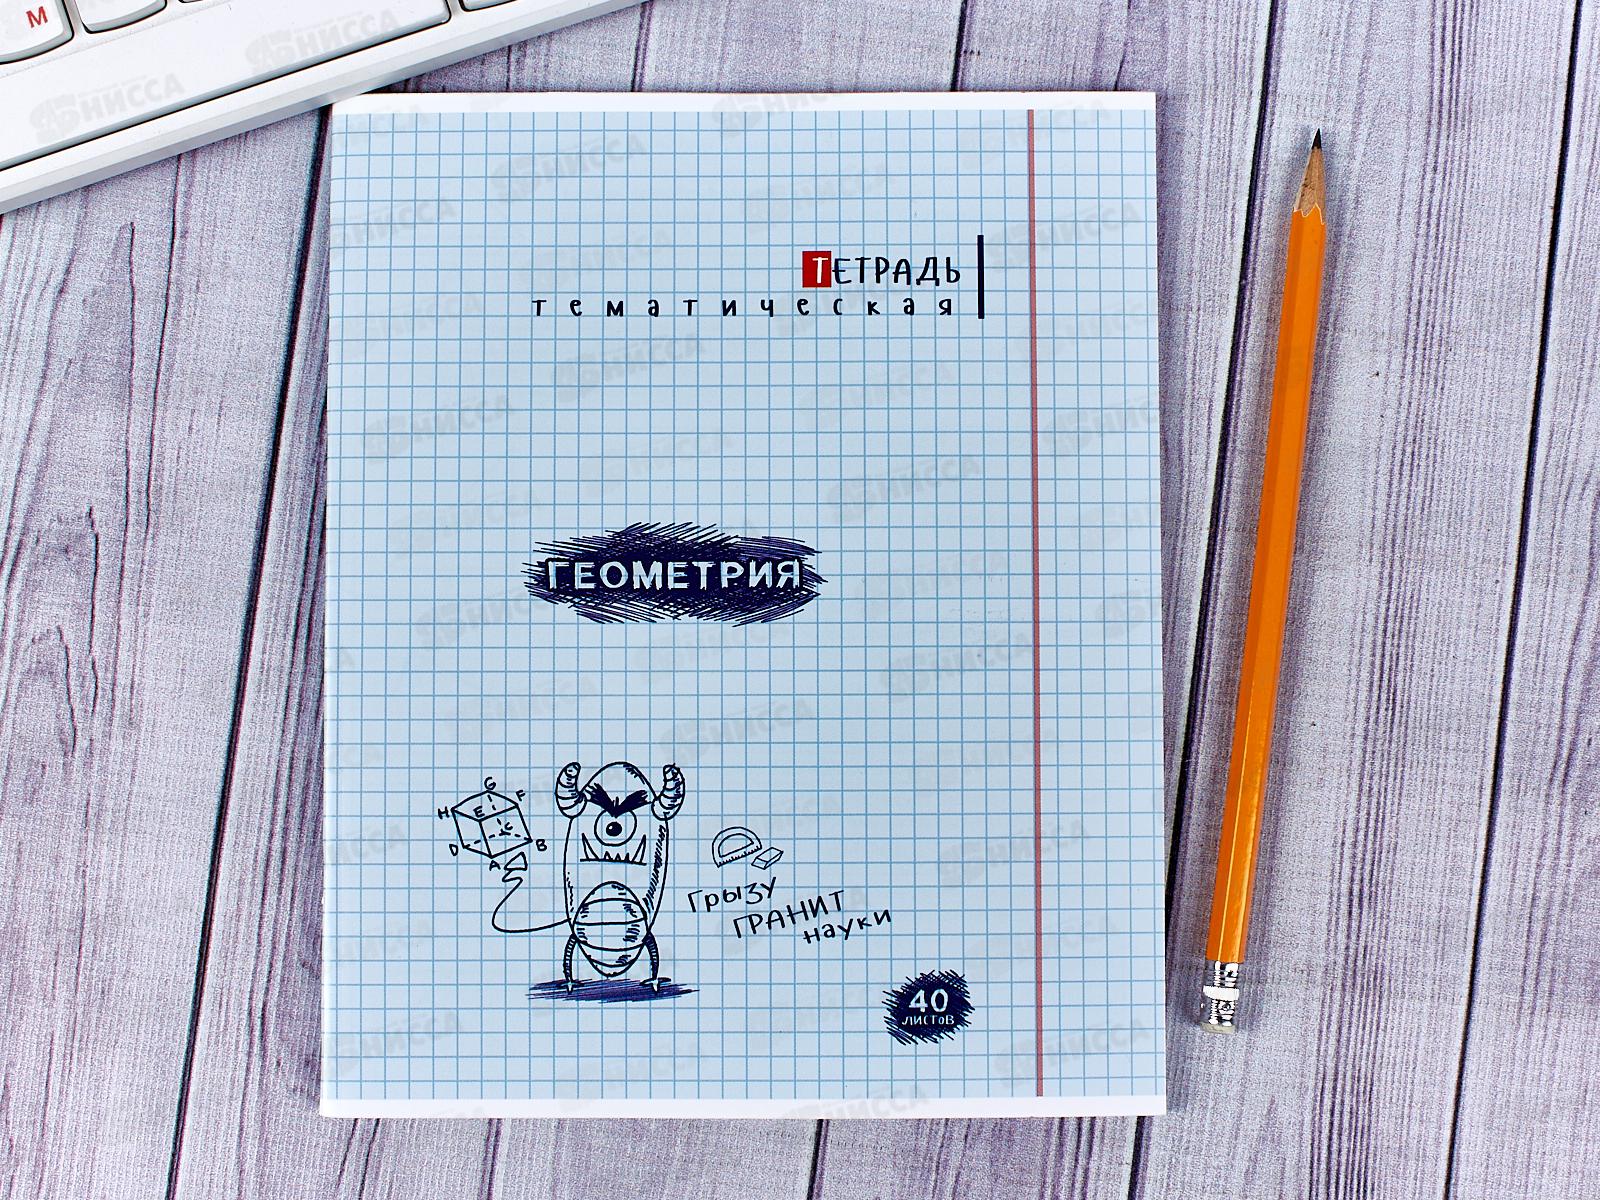 М
ТЕТРАДЬ
тематическая
ГЕОМЕТРИЯ
G
H
E
F
C
D
B
A
Грызу
ГРАНИТ
науки
40
ЛИСТОВ
АННИССА